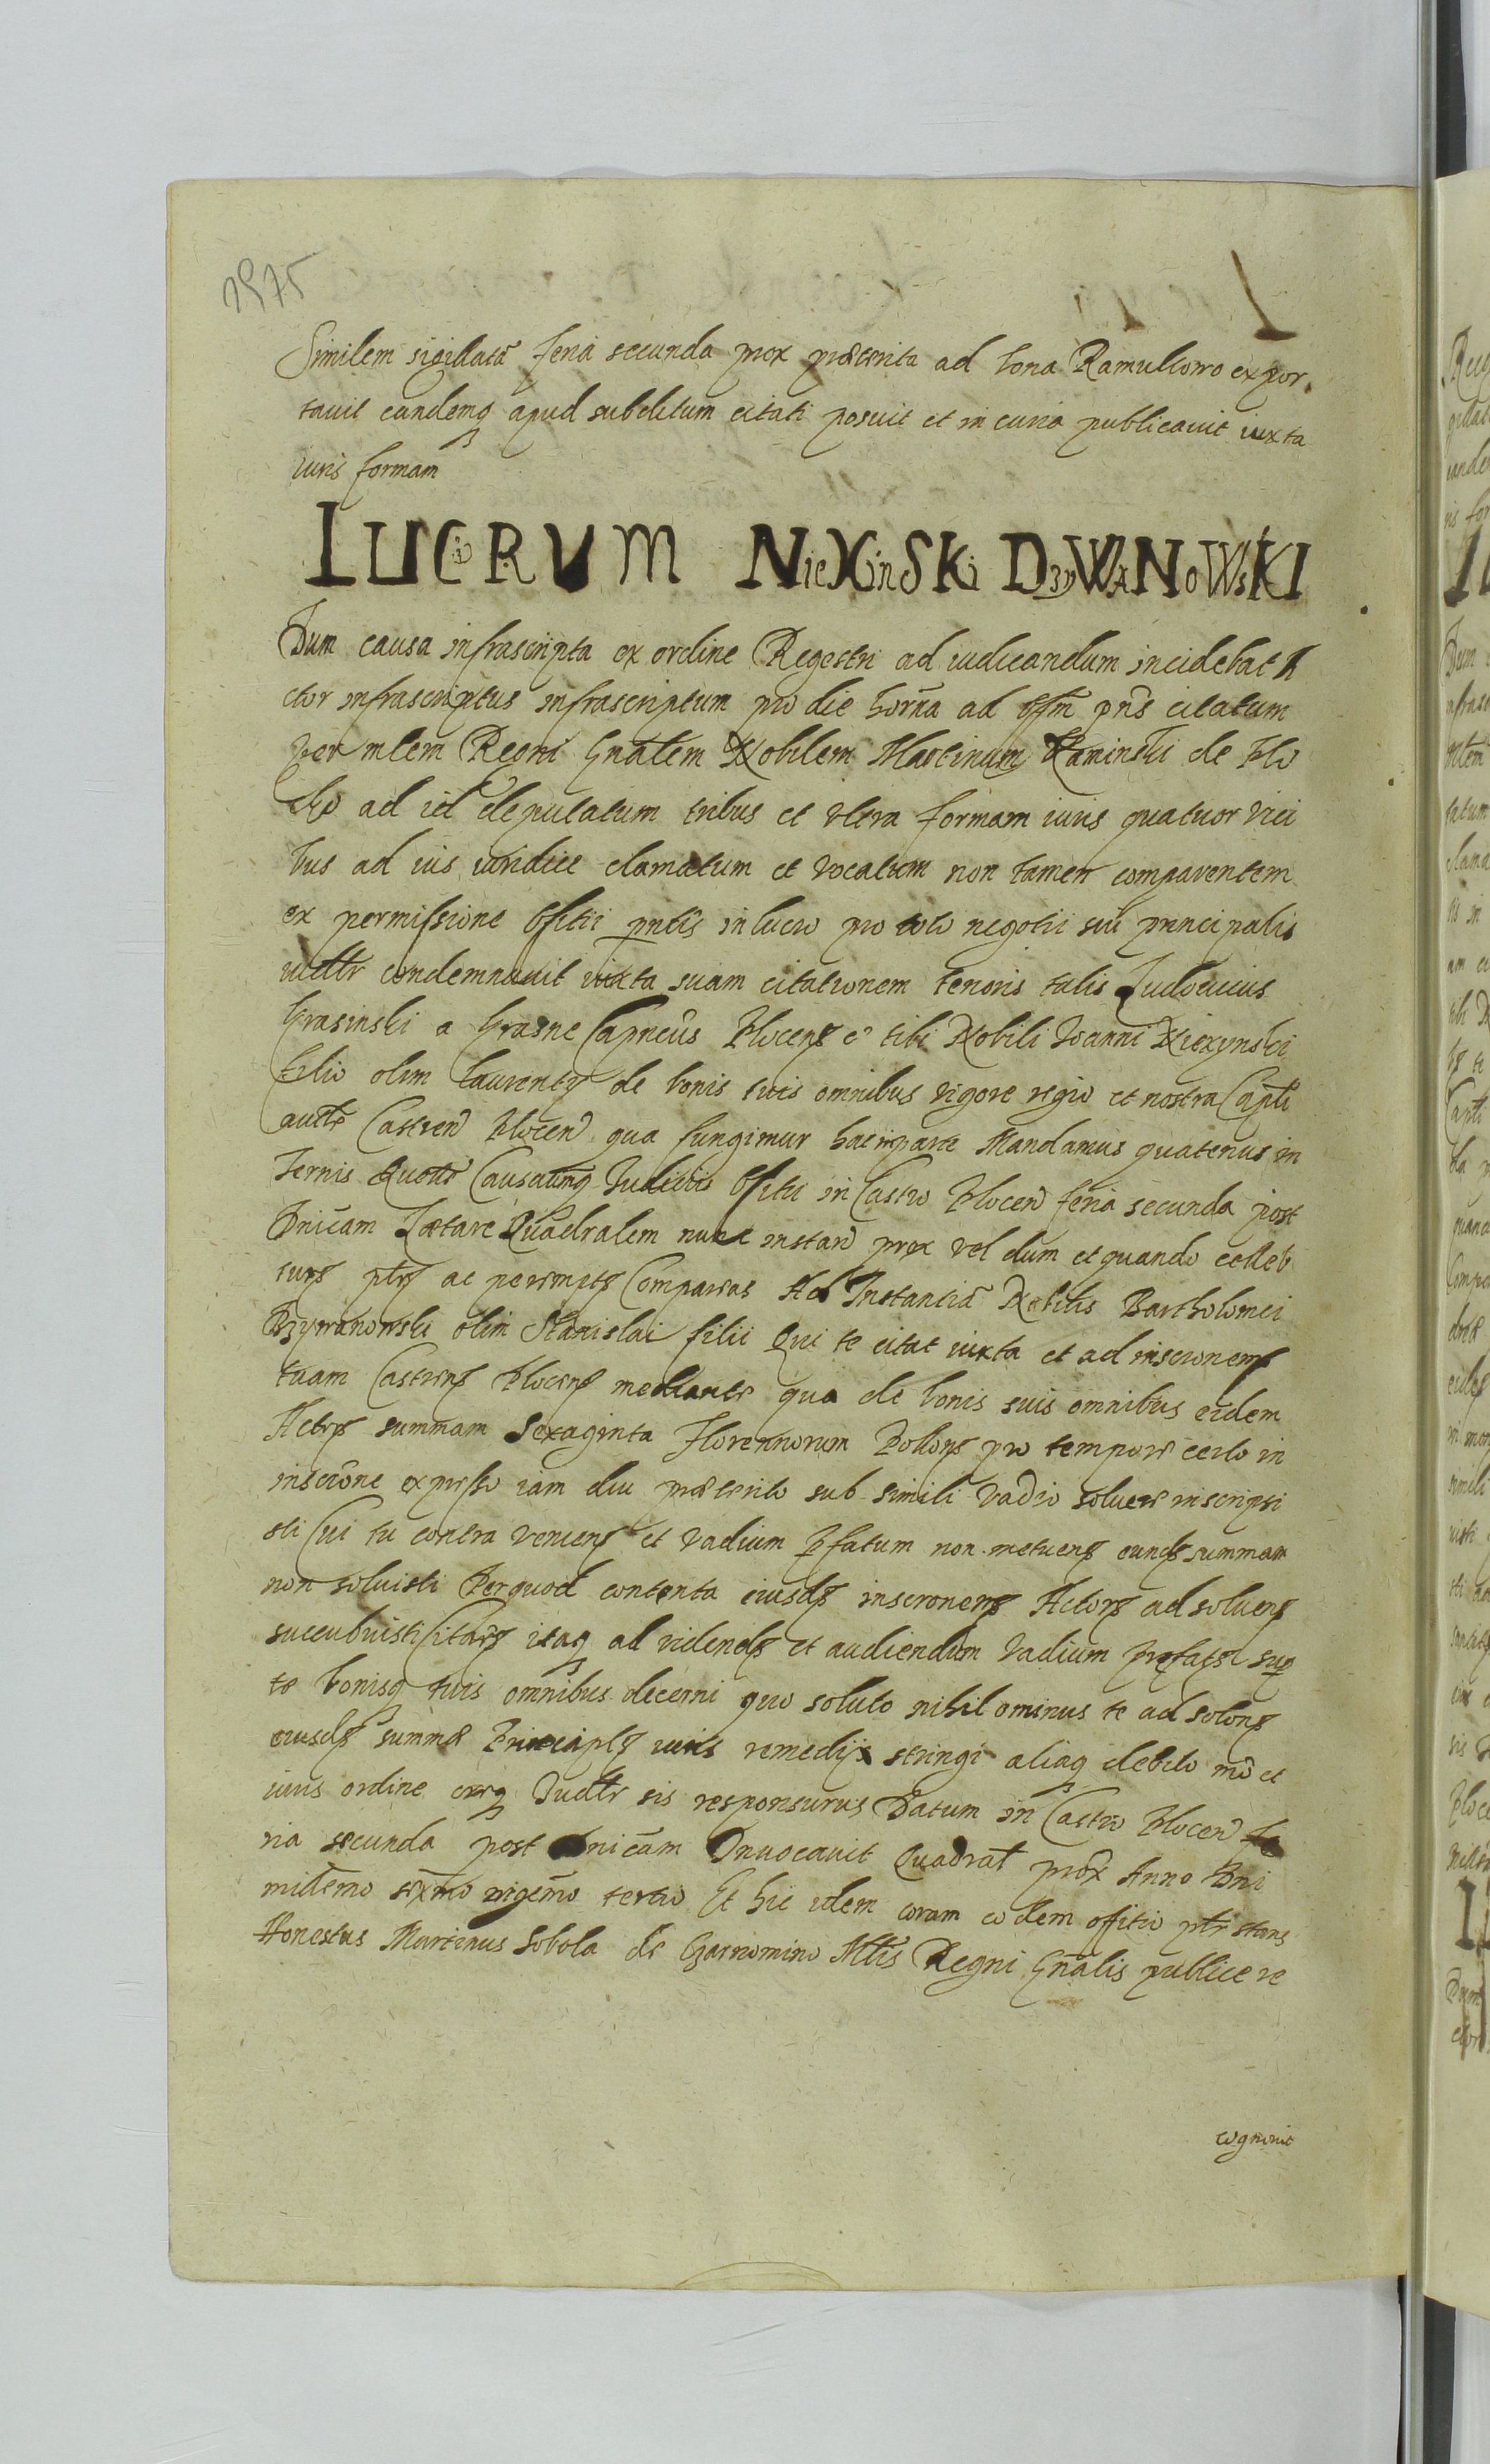 2975
Similem sigillatã feria secunda prox præterita ad bona Ramultowo expor
tavit eandemq apud subditum citati posuit et in curia publicavit iuxta
iuris formam
LUCRUM NieXinSKi DZyWANoWsKI
Dum causa infrascripta ex ordine Regestri ad iudicandum incidebat A
ctor infrascriptus infrascriptum pro die horñã ad offm pñs citatum
per mlem Regni Gnalem Nobilem Martinum Kaminski de Plo
cko ad id deputatum tribus et vltra formam iuris quatuor vici
bus ad ius iuridice clamatum et vocatum non tamen comparentem
ex permissione Offitii pntis in lucro pro toto negotii sui principalis
iudltr condemnavit iuxta suam citationem tenoris talis Ludovicus
Krasinski a Krasne Capneus Plocens e tibi Nobili Joanni Niexynski
filio olim Laurenty de bonis tuis omnibus vigore regia et nostra Capli
autte Castren Plocen qua fungimur hac in parte Mandamus quatenus in
Ternis Querle Causarumq Judiciis Offitii in Castro Plocen feria secunda post
Dnicam Lætare Quadralem nunc instan prox vel dum et quando celleb
ptr ac peremptr Compareas Ad Instantiã Nobilis Bartholomei
Dzywanowski olim Stanislai filii Qui te citat iuxta et ad inscronem
tuam Castrens Plocens mediante qua de bonis suis omnibus eidem
Actori summam Sexaginta Florennorum Pollons pro tempore certo in
inscrone expresso iam diu præterito sub simili vadio solvere inscripsi
sti Cui tu contra veniens et vadium pfatum non metuens eands summam
non solvisti Per quod contenta eiusds inscronens Actors ad solvens
succubuisti Citaris itaq ad vidends et audiendum vadium prefats sup
te bonisq tuis omnibus decerni quo soluto nihil ominus te ad solons
eiusds summæ Principls iuris remedijs stringi aliaq debito mo et
iuris ordine Judltr sis responsurus Datum in Castro Plocen fe
ria secunda post Dnicam Invocavit Quadral prox Anno Dni
millemo sexmo vigemo tertio Et hic idem coram eodem offitio ptr stans
Honestus Martinus Sobola de Mtis Regni Gnalis publice re
cognovit